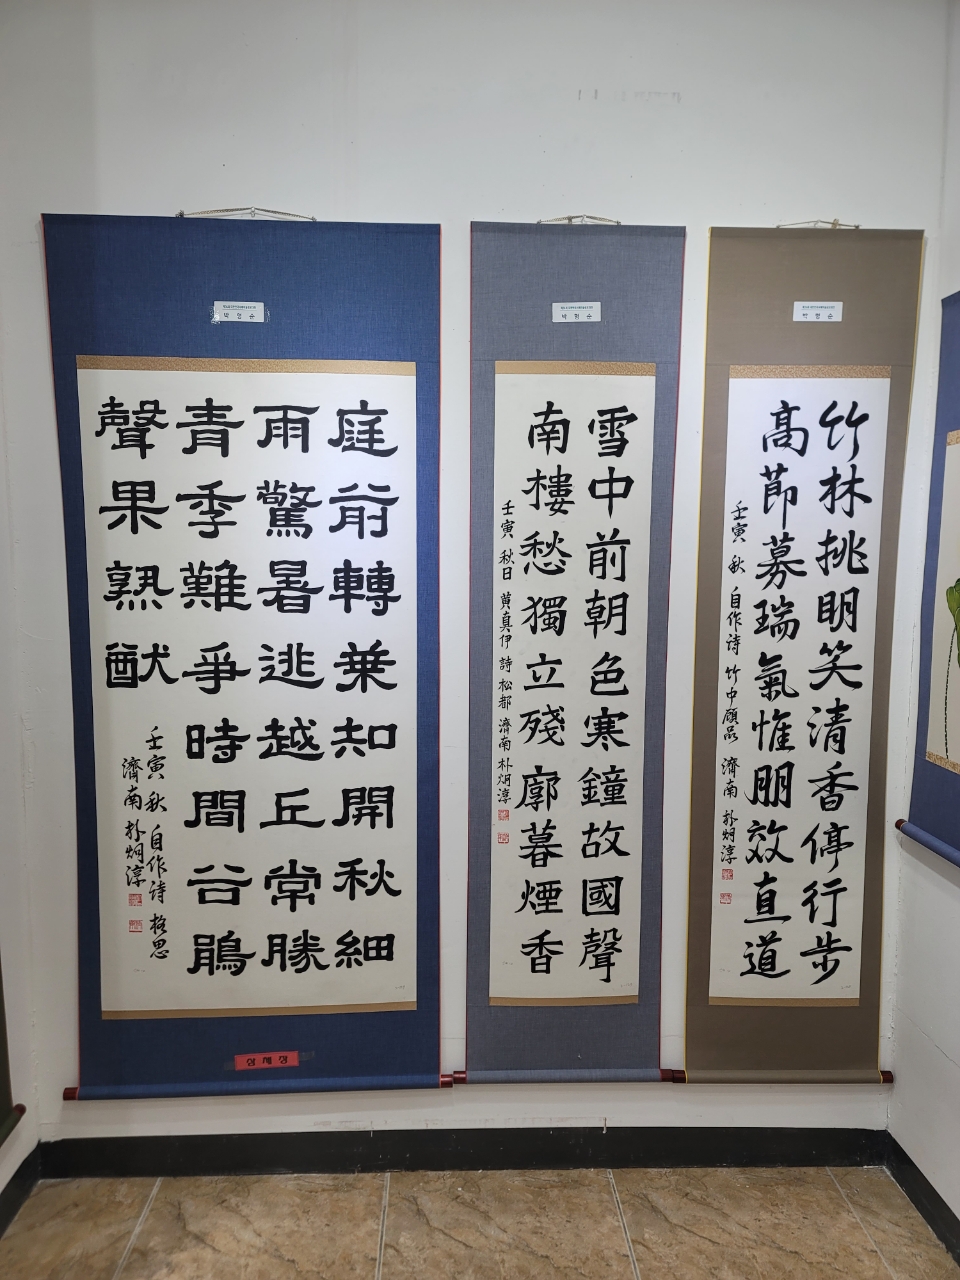 박 형 순
庭前轉葉知開秋細
雨驚暑逃越丘常勝
青季難爭時間谷鵑
聲果熟猷
壬寅 秋 自作詩
濟南 朴炯淳
삼 체 상
박 형 순
雪中前朝色寒鐘故國聲
南樓愁獨立殘廓暮煙香
壬寅 秋日 黃真伊 詩 松都 濟南 朴炯淳
박 형 순
竹林挑明笑清香停行步
高節募瑞氣惟朋效直道
壬寅 秋 自作詩 竹中顧品 濟南 朴炯淳